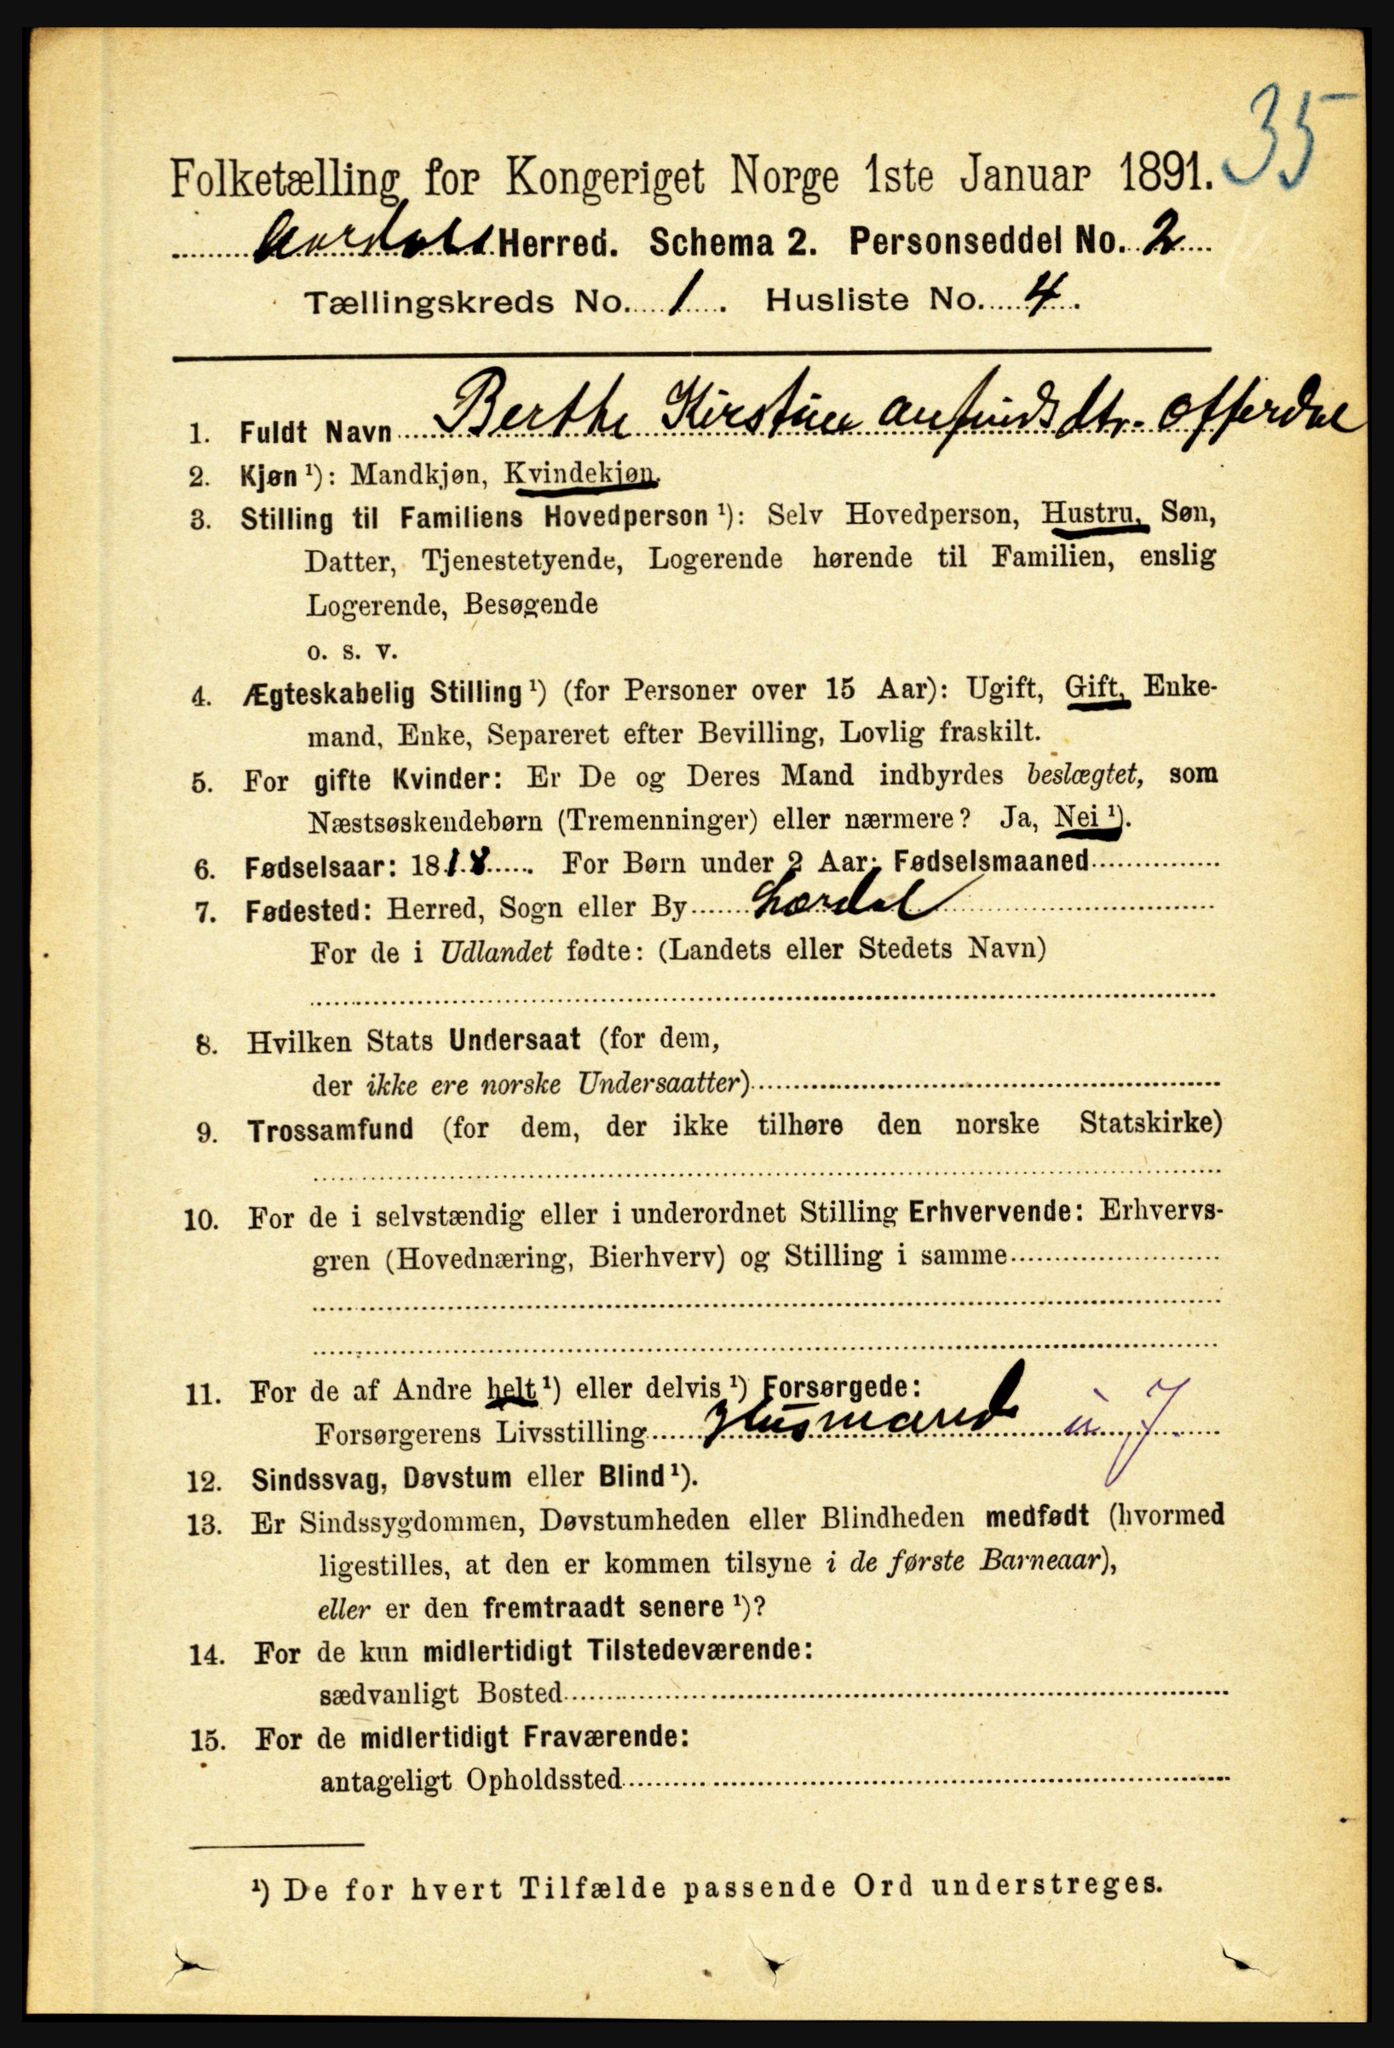 35
Folketælling for Kongeriget Norge 1ste Januar 1891.
Aardals Herred. Schema 2. Personseddel No. 2
Tællingskreds No. 1. Husliste No. 4.
1. Fuldt Navn Berthe Kirstine Anfindsdtr. Offerdal
2. Kjøn ¹): Mandkjøn, Kvindekjøn.
3. Stilling til Familiens Hovedperson ¹): Selv Hovedperson, Hustru, Søn,
Datter, Tjenestetyende, Logerende hørende til Familien, enslig
Logerende, Besøgende
o. s. v.
4. Ægteskabelig Stilling ¹) (for Personer over 15 Aar): Ugift, Gift, Enke-
mand, Enke, Separeret efter Bevilling, Lovlig fraskilt.
5. For gifte Kvinder: Er De og Deres Mand indbyrdes beslægtet, som
Næstsøskendebørn (Tremenninger) eller nærmere? Ja, Nei ¹).
6. Fødselsaar: 1818. For Børn under 2 Aar: Fødselsmaaned
7. Fødested: Herred, Sogn eller By Lærdal
For de i Udlandet fødte: (Landets eller Stedets Navn)
8. Hvilken Stats Undersaat (for dem,
der ikke ere norske Undersaatter)
9. Trossamfund (for dem, der ikke tilhøre den norske Statskirke)
10. For de i selvstændig eller i underordnet Stilling Erhvervende: Erhvervs-
gren (Hovednæring, Bierhverv) og Stilling i samme
11. For de af Andre helt ¹) eller delvis ¹) Forsørgede:
Forsørgerens Livsstilling Husmand u. J.
12. Sindssvag, Døvstum eller Blind ¹).
13. Er Sindssygdommen, Døvstumheden eller Blindheden medfødt (hvormed
ligestilles, at den er kommen tilsyne i de første Barneaar),
eller er den fremtraadt senere ¹)?
14. For de kun midlertidigt Tilstedeværende:
sædvanligt Bosted
15. For de midlertidigt Fraværende:
antageligt Opholdssted
¹) De for hvert Tilfælde passende Ord understreges.